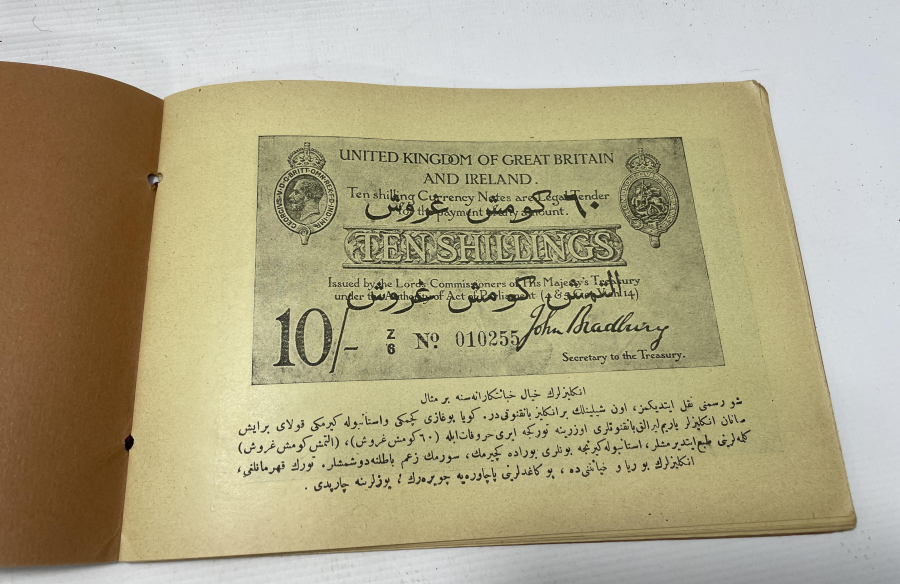 UNITED KINGDOM OF GREAT BRITAIN
AND IRELAND.
Ten shilling Currency Notes are Legal Tender
for the payment of any amount.
٦٠ كومش غروش
TEN SHILLINGS
Issued by the Lords Commissioners of His Majesty's Treasury
under the Authority of Act of Parliament (4 & 5 Geo. V Ch.14)
التمش كومش غروش
10/-
Z/6 No 010255
John Bradbury
Secretary to the Treasury.
GEORGIVS·V·D·G·BRITT:OMN:REX·F·D·IND:IMP:
انكليزلرك خيال خباثتكارانه‌سنه بر مثال
شو رسمنى نقل ايتديكمز، اون شيلينلك بر انكليز بانقنوتى در. كويا بوغازى كچمكى واستانبوله كيرمكى قولاى برايش
صانان انكليزلر ياريم ليرالق بانقنوتلرى اوزرينه توركجه ايرى حروفات ايله (٦٠ كومش غروش)، (التمش كومش غروش)
كله‌لرينى طبع ايتديرمشلر، استانبوله كيرنجه بونلرى بوراده كچيرمك، سورمك زعم باطلنه دوشمشلر. تورك قهرمانلغى،
انكليزلرك بو ريا و خباثتنى ده، بو كاغدلرينى پاچاورەيه چويره‌رك، يوزلرينه چارپدى.